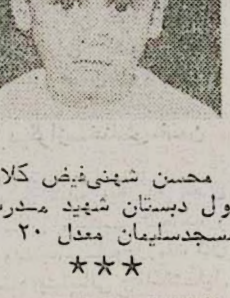 محسن شهنی‌فیض کلا
ول دبستان شهید مدر
سجدسلیمان معدل ۲۰
***